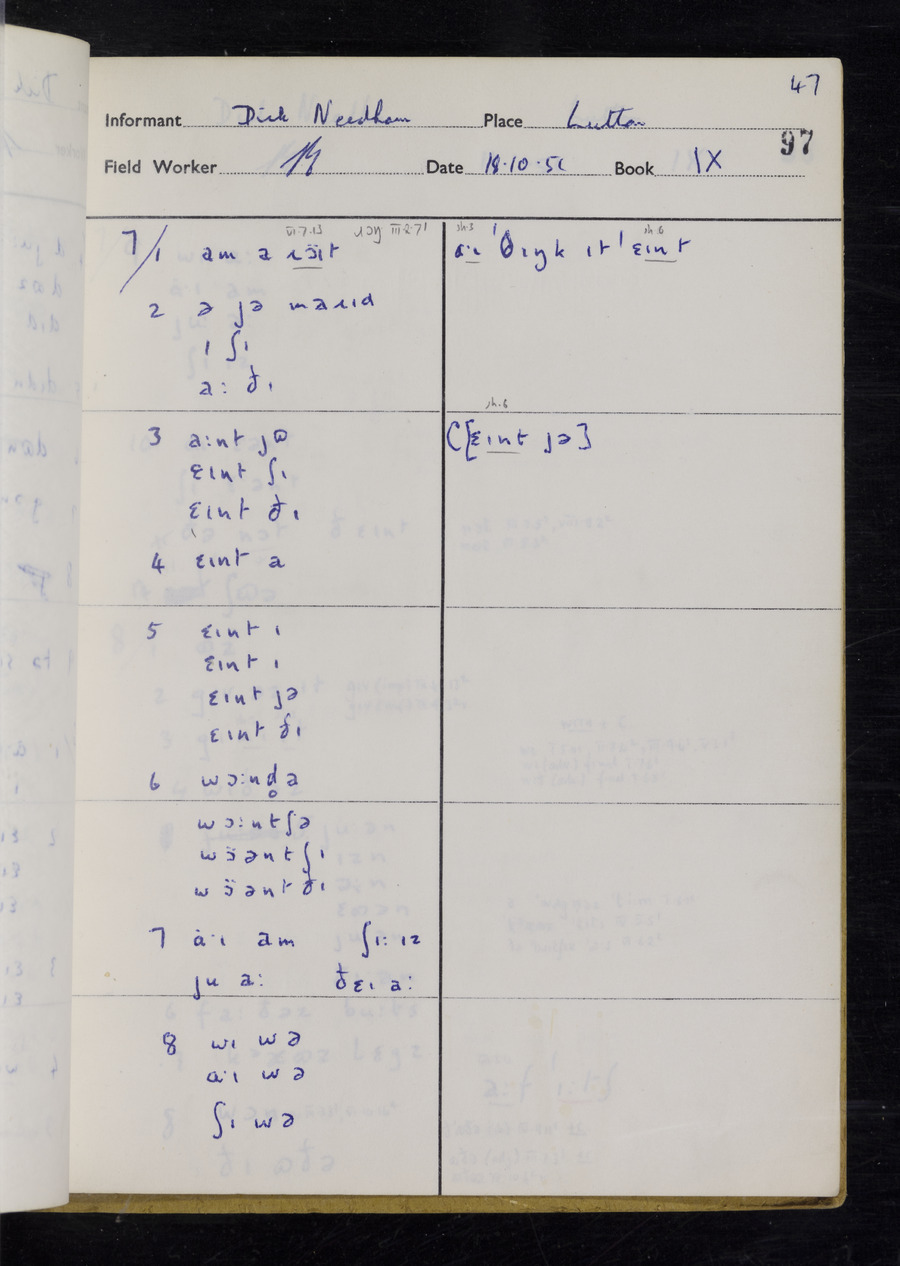 47
Informant Dick Needham Place Lutton
97
Field Worker Date 18·10·51 Book IX
VI·7·13 ɹɔŋ III·2·7¹ sh.3 sh.6
7/1 am a ɹɔ̈ɪt ɑˑɪ ˈθɪŋk ɪt ˈɛɪnt
2 ə jə maɹɪd
ɪ ʃɪ
a: ðɪ
sh.6
3 a:nt jə ([ɛɪnt jə]
ɛɪnt ʃɪ
ɛɪnt ðɪ
4 ɛɪnt a
5 ɛɪnt ɪ
ɛɪnt ɪ
ɛɪnt jə
ɛɪnt ðɪ
6 wɔ:nd̥a
wɔ:ntʃə
wɔ̈əntʃɪ
wɔ̈əntðɪ
7 ɑˑɪ am ʃɪ: ɪz
ju a: ðɛɪ a:
8 wɪ wə
ɑˑɪ wə
ʃɪ wə